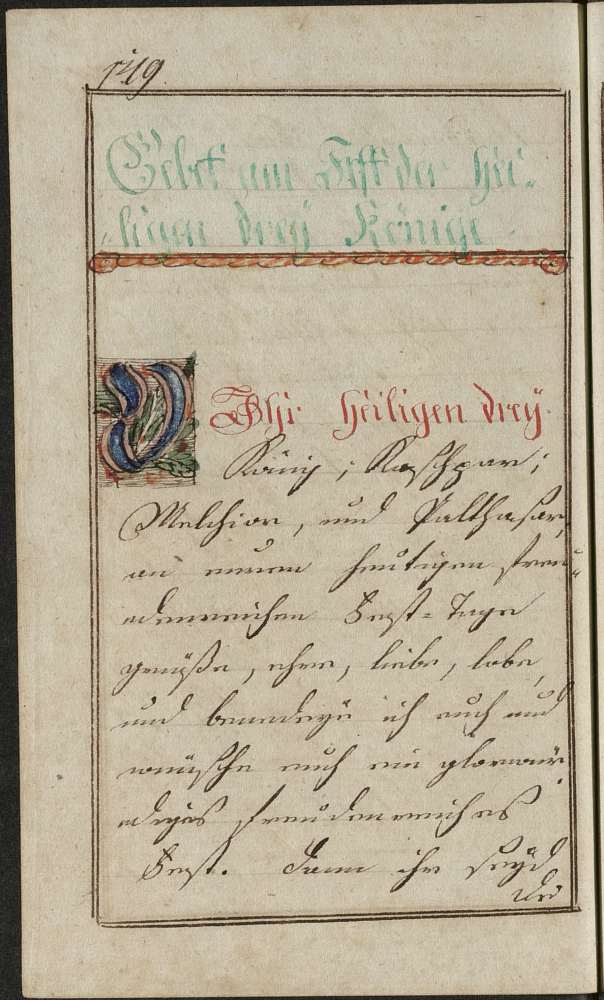 149.
Gebet am Fest der Hei-
ligen dreÿ Könige
Ihr heiligen dreÿ
König; Kaschpar;
Melchior, und Palthasar,
an eurem heutigen freu-
denreichen Fest-Tage
grüße, ehre, liebe, lobe,
und benedeye ich euch und
wünsche euch ein glorwür
diges freudenreiches
Fest. Dann ihr seÿd
die